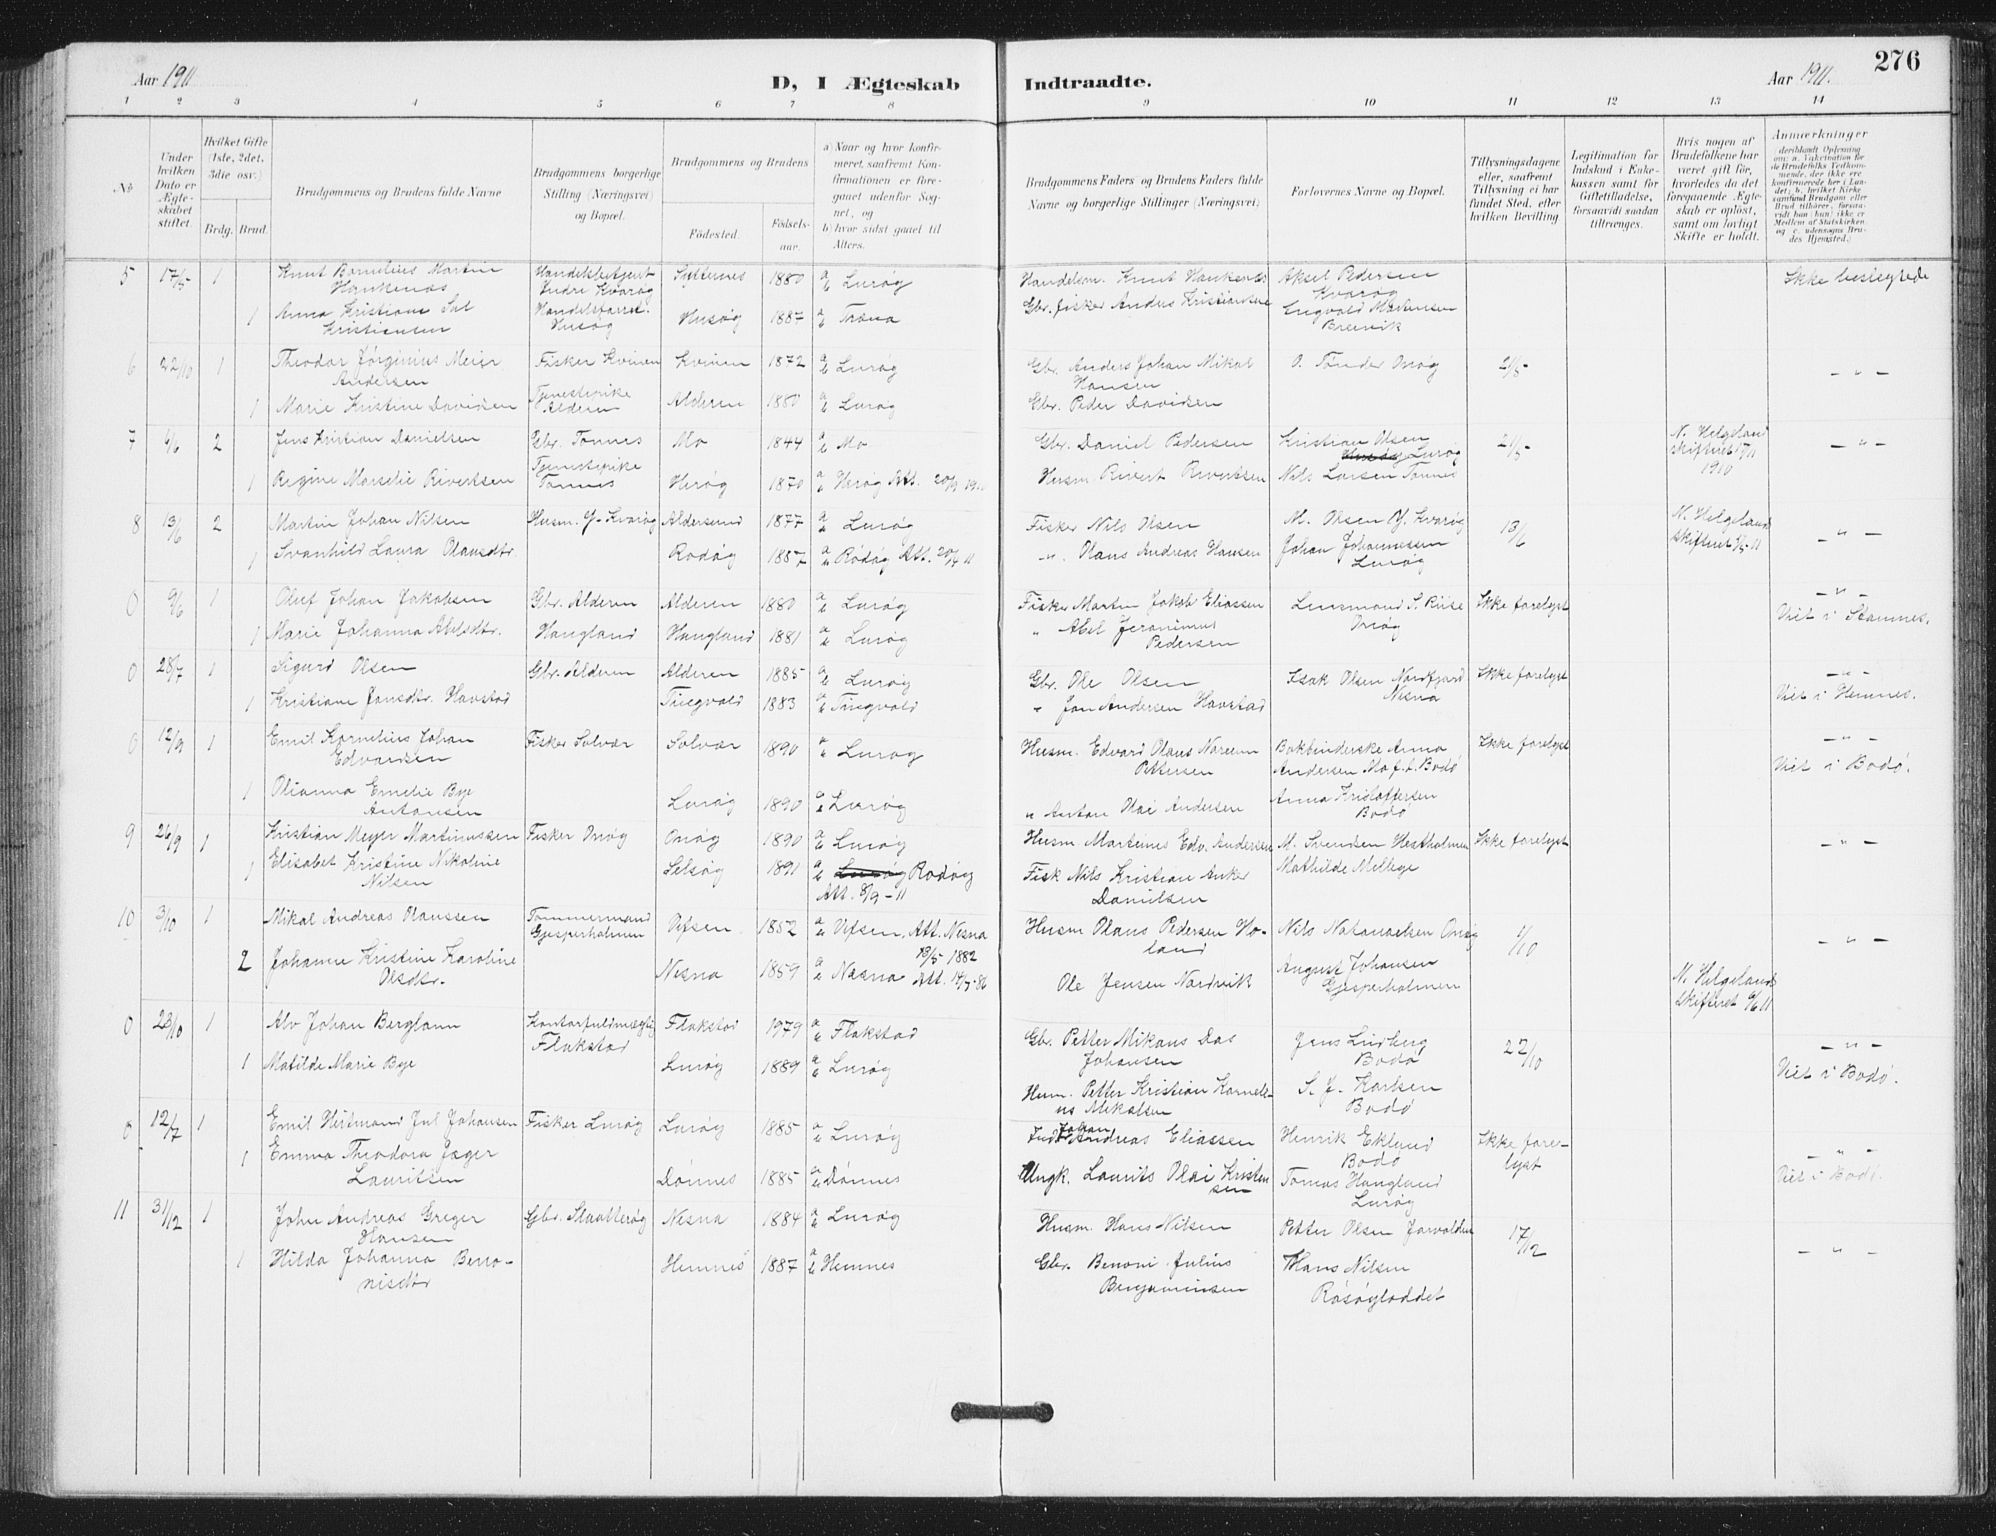 Aar 1911
D, I Ægteskab
Indtraadte.
Aar 1911.
276
1 2 3 4 5 6 7 8 9 10 11 12 13 14
No
Under hvilken Dato er Ægteskabet stiftet.
Hvilket Gifte (1ste, 2det, 3die osv.)
Brdg. Brud.
Brudgommens og Brudens fulde Navne
Brudgommens borgerlige Stilling (Næringsvei) og Bopæl.
Brudgommens og Brudens
Fødested.
Fødselsaar.
a) Naar og hvor konfirmeret, saafremt Konfirmationen er foregaaet udenfor Sognet, og
b) hvor sidst gaaet til Alters.
Brudgommens Faders og Brudens Faders fulde Navne og borgerlige Stillinger (Næringsvei)
Forlovernes Navne og Bopæl.
Tillysningsdagene eller, saafremt Tillysning ei har fundet Sted, efter hvilken Bevilling
Legitimation for Indskud i Enkekassen samt for Giftetilladelse, forsaavidt saadan tiltrænges.
Hvis nogen af Brudefolkene har været gift før, hvorledes da det foregaaende Ægteskab er opløst, samt om lovligt Skifte er holdt.
Anmærkninger
(deriblandt Oplysning om: a. Vakcination for de Brudefolks Vedkommende, der ikke ere konfirmerede her i Landet; b. hvilket Kirkesamfund Brudgom eller Brud tilhører, forsaavidt han (hun) ikke er Medlem af Statskirken og c. udensogns Brudes Hjemsted.)
5 17/5 1 Knut Kornelius Martin Haukenæs Handelsbetjent Indre Kvarøg Sytternes 1880 a b Lurøg Handelsm. Knut Haukenæs Aksel Pedersen Kvarøg Ikke beslegtede
1 Anna Kristiane Kristiansen Husøg Husøg 1887 a b Træna Gbr. fisker Anders Kristiansen Ingvald Martinsen Breivik
6 22/10 1 Theodor Jørginius Meier Andersen Fisker Kvinen Kvinen 1872 a b Lurøg Gbr. Anders Johan Mikal Hansen O. Tønder Onøg 21/5 - " -
1 Marie Kristine Davidsen Tjenestepike Alderen Alderen 1880 a b Lurøg Gbr. Peder Davidsen
7 5/6 2 Jens Kristian Danielsen Gbr. Tonnes Mo 1844 a b Mo Gbr. Daniel Pedersen Kristian Olsen Lurøg 21/5 N. Helgeland skifteret 17/11 1910 - " -
1 Regine Marselie Rivertsen Tjenestepike Tonnes Herøg 1870 a b Herøg Att. Husm. Rivert Rivertsen Nils Larsen Tonnes
8 13/6 2 Martin Johan Nilsen Husm. Y. Kvarøg Aldersund 1877 a b Lurøg Fisker Nils Olsen M. Olsen Y. Kvarøg 13/6 N. Helgeland skifteret - " -
1 Svanhild Laura Olausdtr. Rodøg 1887 a b Rødøg Att. 20/4 11 " Olaus Andreas Hansen Johan Johannessen Lurøg
0 9/6 1 Oluf Johan Jakobsen Gbr. Alderen Alderen 1880 a b Lurøg Fisker Martin Jakob Eliassen Lensmand S. Riise Onøg Ikke forelyst - " -
1 Marie Johanna Abelsdtr. Haugland Haugland 1881 a b Lurøg " Abel Jeronimus Pedersen Viet i Stamnes.
0 28/7 1 Sigurd Olsen Gbr. Alderen Alderen 1885 a b Lurøg Gbr. Ole Olsen Isak Olsen Nordfjord Nesna Ikke forelyst - " -
1 Kristiane Jonsdtr. Havstad Tingvold 1883 a b Tingvold " Jon Andersen Havstad Viet i Hemnes.
0 12/9 1 Emil Kornelius Johan Edvardsen Fisker Solvær Solvær 1890 a b Lurøg Husm. Edvard Olaus Pettersen Bokbinderske Anna Andersen Bodø Ikke forelyst - " -
1 Olianna Emelie Bye Antonsen Lurøg 1890 a b Lurøg " Anton Olai Andersen Anna Kristoffersen Bodø Viet i Bodø.
9 26/9 1 Kristian Meyer Martinussen Fisker Onøg Onøg 1890 a b Lurøg Husm Martinus Edv. Andersen M. Svendsen Hestholmen Ikke forelyst - " -
1 Elisabet Kristine Nikoline Nilsen Selsøg 1891 a b Lurøg Rodøg Att. 8/9-11 Fisk Nils Kristian Anker Danielsen Mathilde Mellege
10 3/10 1 Mikal Andreas Olaussen Tømmermand Gjesperholmen Vefsen 1852 a b Vefsen, Att. Nesna 13/5 1882 Husm Olaus Pedersen Holand Nils Natanaelsen Onøg 1/10 - " -
2 Johanne Kristine Karoline Olsdtr. Nesna 1859 a b Næsna Att. Ole Jensen Nordvik August Johansen Gjesperholmen N. Helgeland skifteret 6/6 11
0 23/10 1 Alv Johan Berglann Kontorfuldmægtig Flakstad Flakstad 1979 a b Flakstad Gbr. Petter Mikaus Das Johansen Jens Lindberg Bodø 22/10 - " -
1 Matilde Marie Bye Lurøg 1889 a b Lurøg Husm. Petter Kristian Kornelius Mikalsen S. J. Karlsen Bodø Viet i Bodø.
0 12/7 1 Emil Hertmand Jul Johansen Fisker Lurøg Lurøg 1885 a b Lurøg Johan Andreas Eliassen Henrik Eklund Bodø Ikke forelyst - " -
1 Emma Theodora Jæger Lauritsen Dønnes 1885 a b Dønnes Ungk. Laurits Olai Kristensen Tomas Haugland Lurøg Viet i Bodø.
11 31/12 1 John Andreas Greger Hansen Gbr. Staatterøg Nesna 1884 a b Lurøg Husm. Hans Nilsen Petter Olsen Jarvolden 17/12 - " -
1 Hilda Johanna Benonisdtr Hemnes 1887 a b Hemnes Gbr. Benoni Julius Benjaminsen Hans Nilsen Rosøgloddet